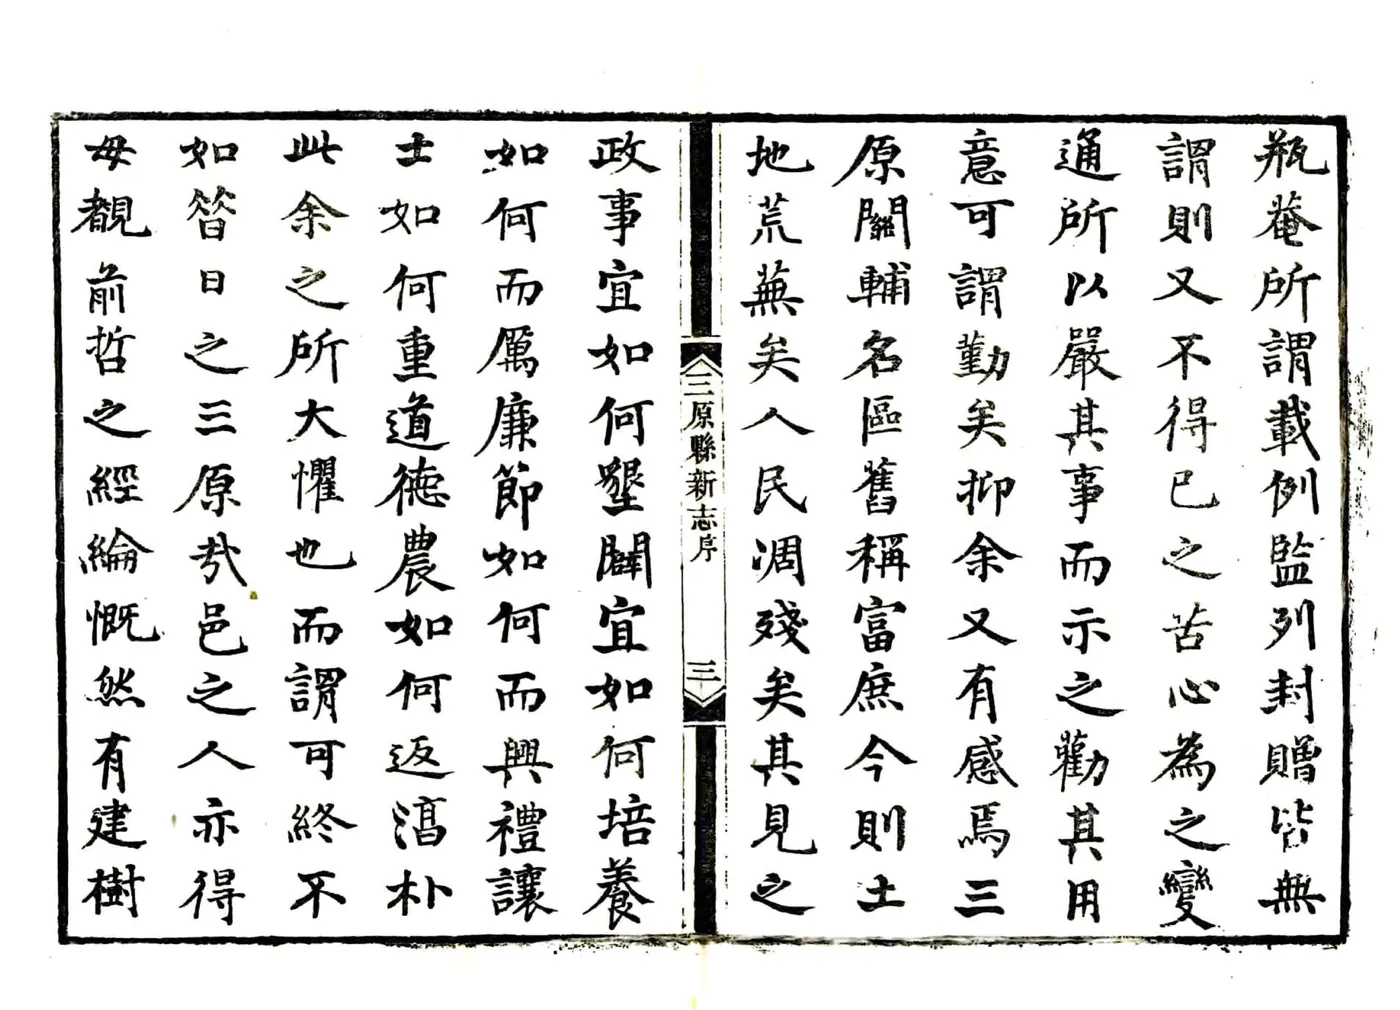 瓶菴所謂載例監列封贈皆無
謂則又不得已之苦心為之變
通所以嚴其事而示之勸其用
意可謂勤矣抑余又有感焉三
原關輔名區舊稱富庶今則土
地荒蕪矣人民凋殘矣其見之
三原縣新志序
三
政事宜如何墾闢宜如何培養
如何而厲廉節如何而興禮讓
士如何重道德農如何返湻朴
此余之所大懼也而謂可終不
如昝日之三原㢤邑之人亦得
毋覩前哲之經綸慨然有建樹